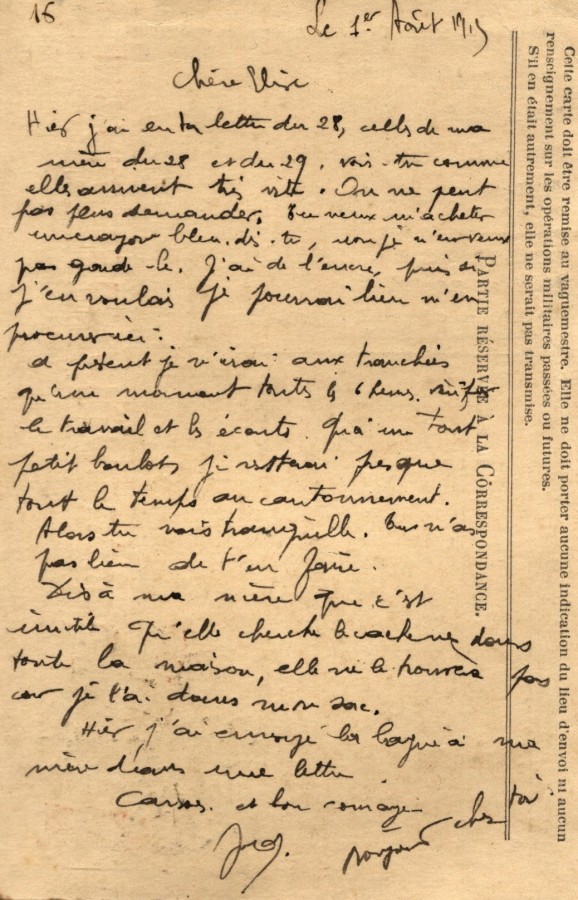 16
Le 1er Août 1915
Chère Elise
Hier j'ai eu ta lettre du 28, celles de ma
mère du 28 et du 29. vois-tu comme
elles arrivent très vite. On ne peut
pas plus demander. Tu veux m'acheter
un crayon bleu. dis-tu, non je n'en veux
pas garde-le. J'ai de l'encre, puis si
j'en voulais je pourrai bien m'en
procurer ici.
a présent je n'irai aux tranchées
qu'un moment touts les 6 heures.
le travail et les écouts. Qu'à un tout
petit boulots je resterai presque
tout le temps au cantonnement.
Alors tu vois tranquille. Tu n'as
pas lieu de t'en faire.
Dis à ma mère que c'est
inutile qu'elle cherche le cachenez dans
toute la maison, elle ne le trouvera pas
car je l'ai dans mon sac.
Hier j'ai envoyé la bague à ma
mère dans une lettre
et bon courage
bonjour chez toi
PARTIE RÉSERVÉE À LA CORRESPONDANCE.
Cette carte doit être remise au vaguemestre. Elle ne doit porter aucune indication du lieu d'envoi ni aucun
renseignement sur les opérations militaires passées ou futures.
S'il en était autrement, elle ne serait pas transmise.